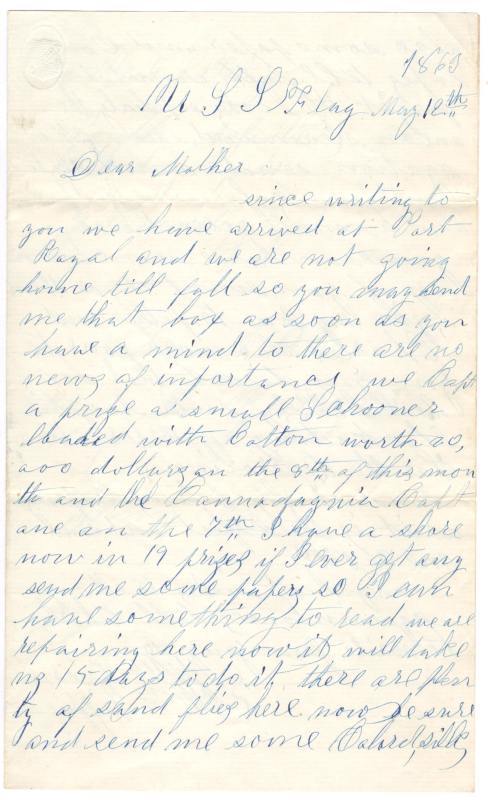 1863
U S S Flag May 12th
Dear Mother
since writing to
you we have arrived at Port
Royal and we are not going
home till fall so you may send
me that box as soon as you
have a mind to there are no
news of infortance we Capt
a prize a small Schooner
loaded with Cotton worth 20,
000 dollars on the 8th of this mon
th and the Cannadagnia Capt
one on the 7th I have a share
now in 19 prizes if I ever get any
send me some papers so I can
have something to read we are
repairing here now it will take
us 15 days to do it there are plen
ty of sand flies here now be sure
and send me some Colord, silk,